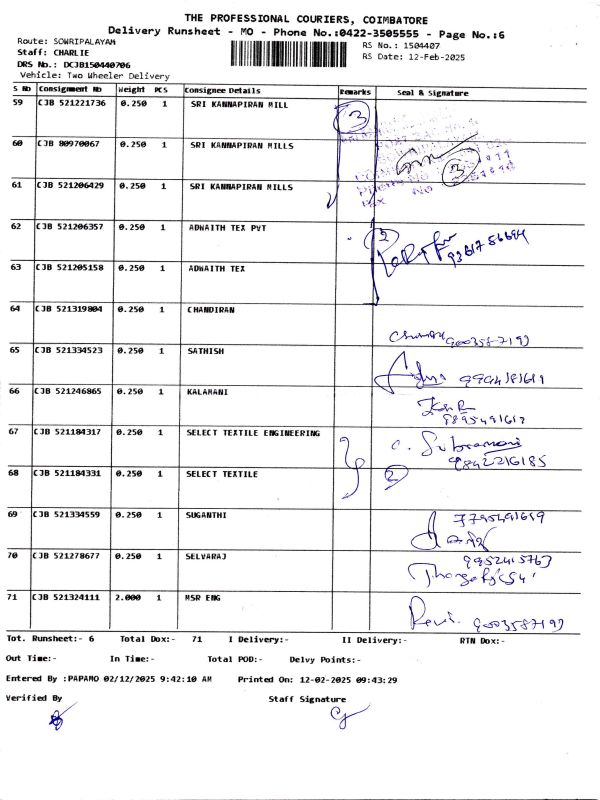 THE PROFESSIONAL COURIERS, COIMBATORE
Delivery Runsheet - MO - Phone No.:0422-3505555 - Page No.:6
Route: SOWRIPALAYAM
RS No.: 1504407
Staff: CHARLIE
RS Date: 12-Feb-2025
DRS No.: DCJB150440706
Vehicle: Two Wheeler Delivery
S No Consignment No Weight PCS Consignee Details Remarks Seal & Signature
59 CJB 521221736 0.250 1 SRI KANNAPIRAN MILL 3
60 CJB 80970067 0.250 1 SRI KANNAPIRAN MILLS 3
61 CJB 521206429 0.250 1 SRI KANNAPIRAN MILLS
62 CJB 521206357 0.250 1 ADWAITH TEX PVT 2
63 CJB 521205158 0.250 1 ADWAITH TEX
64 CJB 521319804 0.250 1 CHANDIRAN
9003587193
65 CJB 521334523 0.250 1 SATHISH
66 CJB 521246865 0.250 1 KALAMANI
67 CJB 521184317 0.250 1 SELECT TEXTILE ENGINEERING C. Subramani
9842216185
68 CJB 521184331 0.250 1 SELECT TEXTILE 2
69 CJB 521334559 0.250 1 SUGANTHI
70 CJB 521278677 0.250 1 SELVARAJ 9952415763
71 CJB 521324111 2.000 1 MSR ENG 9003587193
Tot. Runsheet:- 6 Total Dox:- 71 I Delivery:- II Delivery:- RTN Dox:-
Out Time:- In Time:- Total POD:- Delvy Points:-
Entered By :PAPAMO 02/12/2025 9:42:10 AM Printed On: 12-02-2025 09:43:29
Verified By Staff Signature